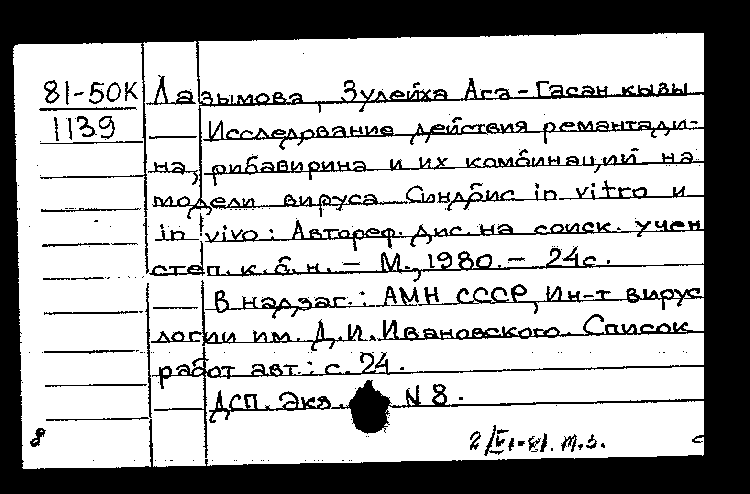 81-50К Лазымова, Зулейха Ага-Гасан кызы
1139 Исследрвание действия ремантади-
на, рибавирина и их комбинаций на
модели вируса Синдбис in vitro и
in vivo: Автореф. дис. на соиск. учен
степ. к.б.н. – М., 1980. – 24с.
В надзаг.: АМН СССР, Ин-т вирус
логии им. Д.И. Ивановского. Список
работ авт.: с. 24.
ДСП. Экз. N 8.
8